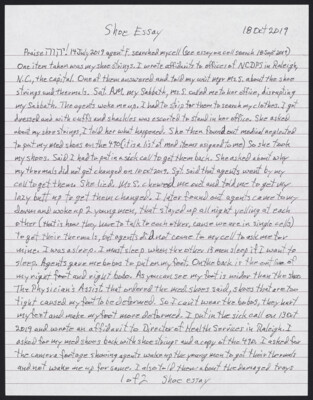 Shoe Essay 18 Oct 2019
Praise 19 July 2019 agent F. searched my cell (see essay on cell search 18 Sept 2019)
One item taken was my shoe strings. I wrote affidavits to offices of NCDPS in Raleigh,
N.C., the capital. One of them answered and told my unit mgr Ms. about the shoe
strings and thermals. Sat. AM, my Sabbath, Ms. called me to her office, disrupting
my Sabbath. The agents woke me up. I had to strip for them to search my clothes. I got
dressed and with cuffs and shackles was escorted to stand in her office. She asked
about my shoe strings, I told her what happened. She then found out medical neglected
to put my med shoes on the 430 (it is a list of med items assigned to me). So she took
my shoes. Said I had to put in a sick call to get them back. She asked about why
my thermals did not get changed on Sgt. said that agents went by my
cell to get them. She lied. Ms. chewed me out and told me to get my
lazy butt up to get them changed. I later found out agents came to my
dorm and woke up 2 young men, that stayed up all night yelling at each
other (that is how they have to talk to each other, cause we are in single cells)
to get their thermals, but agents did not come to my cell to ask me for
mine. I was asleep. I must sleep when the other is now sleep if I want to
sleep. Agents gave me bobos to put on my feet. On the back is the outline of
my right foot and right bobo. As you can see my foot is wider than the shoe.
The Physician's Assist. that ordered the med shoes said, shoes that are too
tight caused my feet to be deformed. So I can't wear the bobos, they hurt
my feet and make my foot more deformed. I put in the sick call on 13 Oct
2019 and wrote an affidavit to Director of Health Services in Raleigh. I
asked for my med shoes back with shoe strings and a copy of the 430. I asked for
the camera footage showing agents woke up the young men to get their thermals
and not wake me up for same. I also told them about the damaged trays
1 of 2 Shoe essay